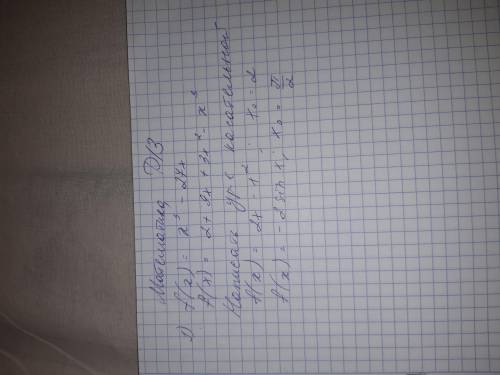 Математика Д/З
1) f(x) = x³ - 27x
f(x) = 27 - 9x + 3x² - x³
Написать ур-е касательной
f(x) = 2x - x², x₀ = 2
f(x) = -2 sin x, x₀ = π/2